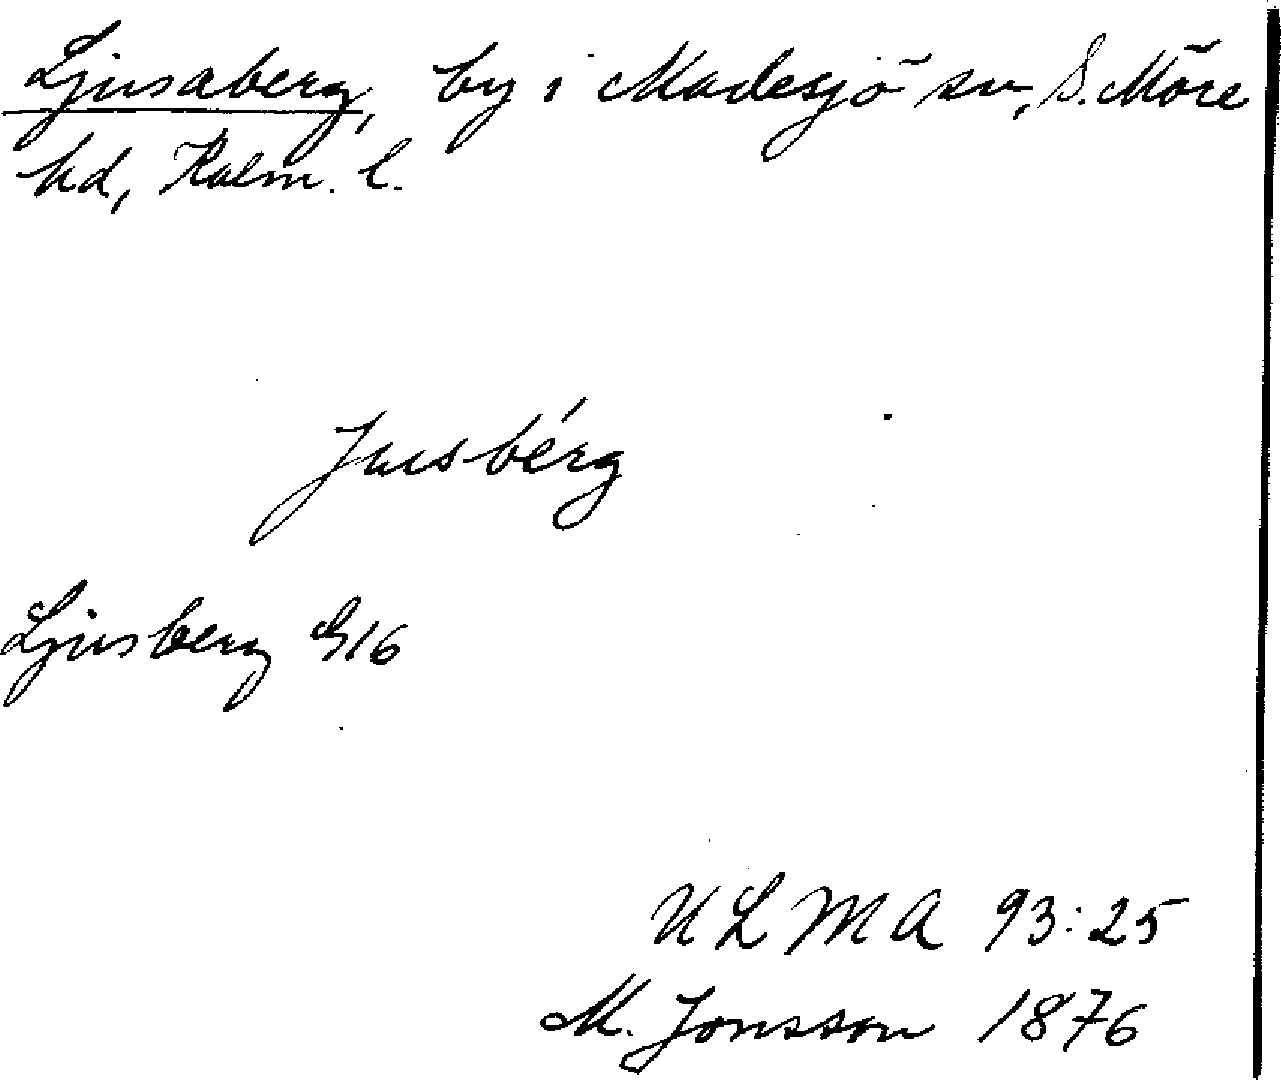 Ljusaberg, by i Madesjö sn, S. Möre
hd, Kalm. l.
Jusbérg
Ljusberg G16
ULMA 93:25
M. Jonsson 1876